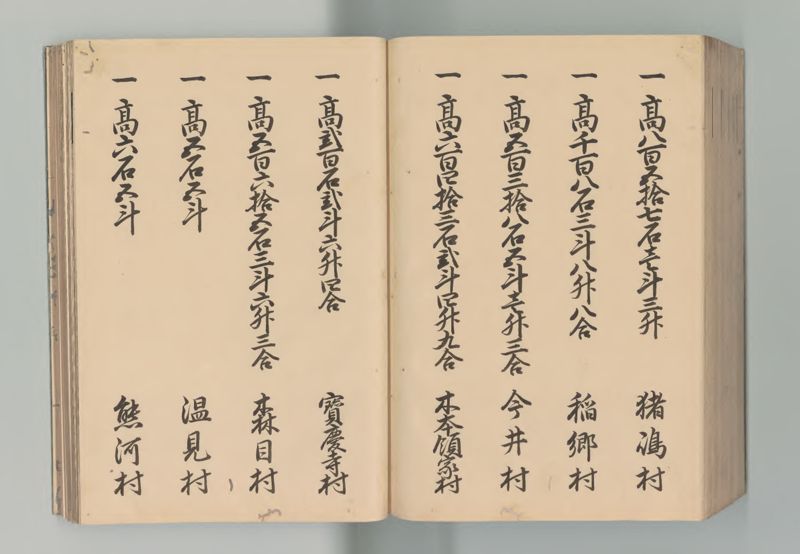 一 髙八百五拾七石壱斗三升 猪嶋村
一 髙千百八石三斗八升八合 稲郷村
一 髙五百三拾八石五斗壱升三合 今井村
一 髙六百四拾三石弐斗四升九合 木本領家村
一 髙弐百石弐斗六升四合 寳慶寺村
一 髙五百六拾五石三斗六升三合 森目村
一 髙五石五斗 温見村
一 髙六石五斗 熊河村